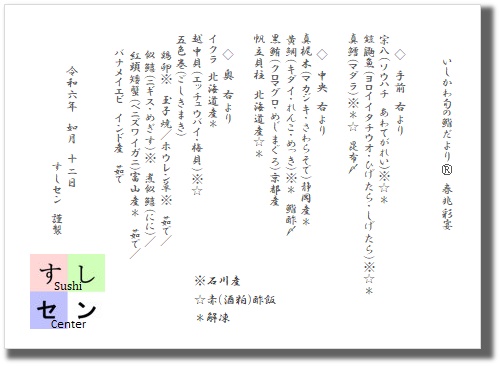 いしかわ旬の鮨だより® 春兆彩宴
◇ 手前 右より
宗八(ソウハチ あわてがれい)※☆*
鎧鼬魚(ヨロイイタチウオ・ひげたら・しげたら)※☆*
真鱈(マダラ)※*☆ 昆布〆
◇ 中央 右より
真梶木(マカジキ・さわらそて)静岡産*
黄鯛(キダイ・れんこ・めっき)※* 鮨酢〆
黒鮪(クロマグロ・めじまぐろ)京都産
帆立貝柱 北海道産☆*
◇ 奥 右より
イクラ 北海道産*
越中貝(エッチュウバイ・梅貝)※☆
五色巻(ごしきまき)
鶏卵※ 玉子焼／ホウレン草※ 茹で／
似鱚(ニギス・めぎす)※ 煮似鱚(にに)／
紅頭矮蟹(ベニズワイガニ)富山産* 茹で／
バナメイエビ インド産 茹で
令和六年 如月 十二日
すしセン 謹製
※石川産
☆赤(酒粕)酢飯
*解凍
すし
Sushi
セン
Center